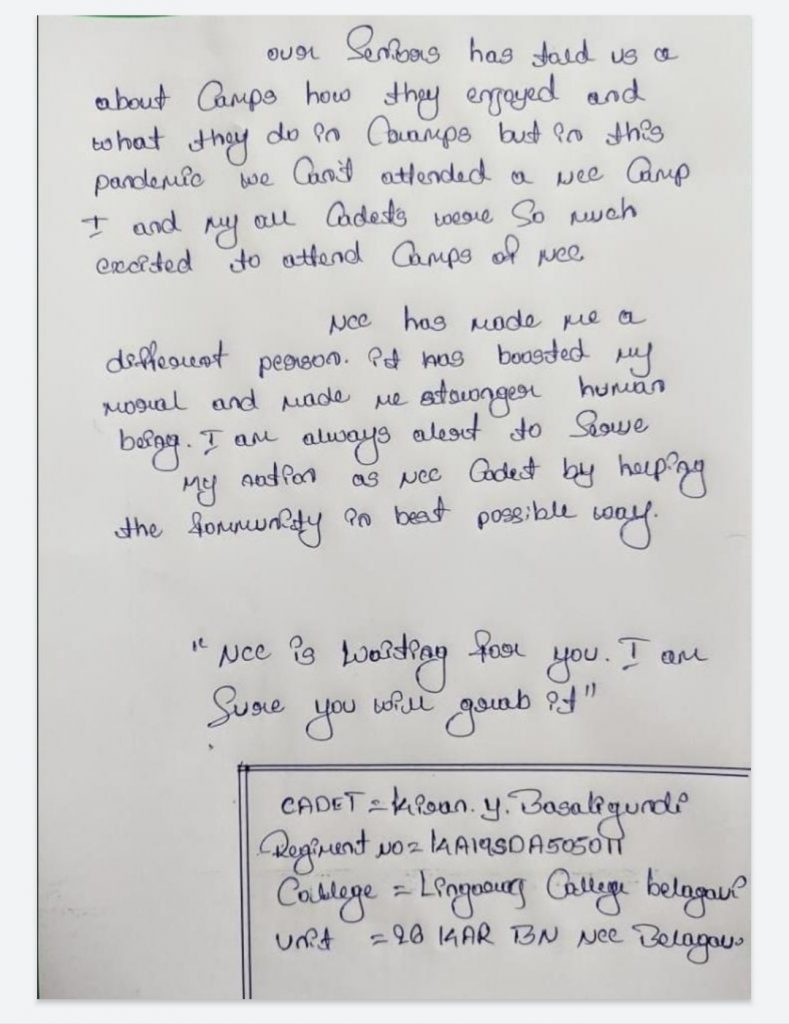 our Seniors has told us a
about Camps how they enjoyed and
what they do in Camps but in this
pandemic we Can't attended a NCC Camp
I and my all Cadets were So much
excited to attend Camps of NCC
NCC has made me a
different person. it has boosted my
moral and made me stronger human
being. I am always alert to Serve
My nation as NCC Cadet by helping
the community in best possible way.
"NCC is waiting for you. I am
Sure you will grab it"
CADET = Kiran. Y. Basaligundi
Regiment NO = KA19SDA505011
College = Lingaraj College belagavi
Unit = 26 KAR BN NCC Belagavi